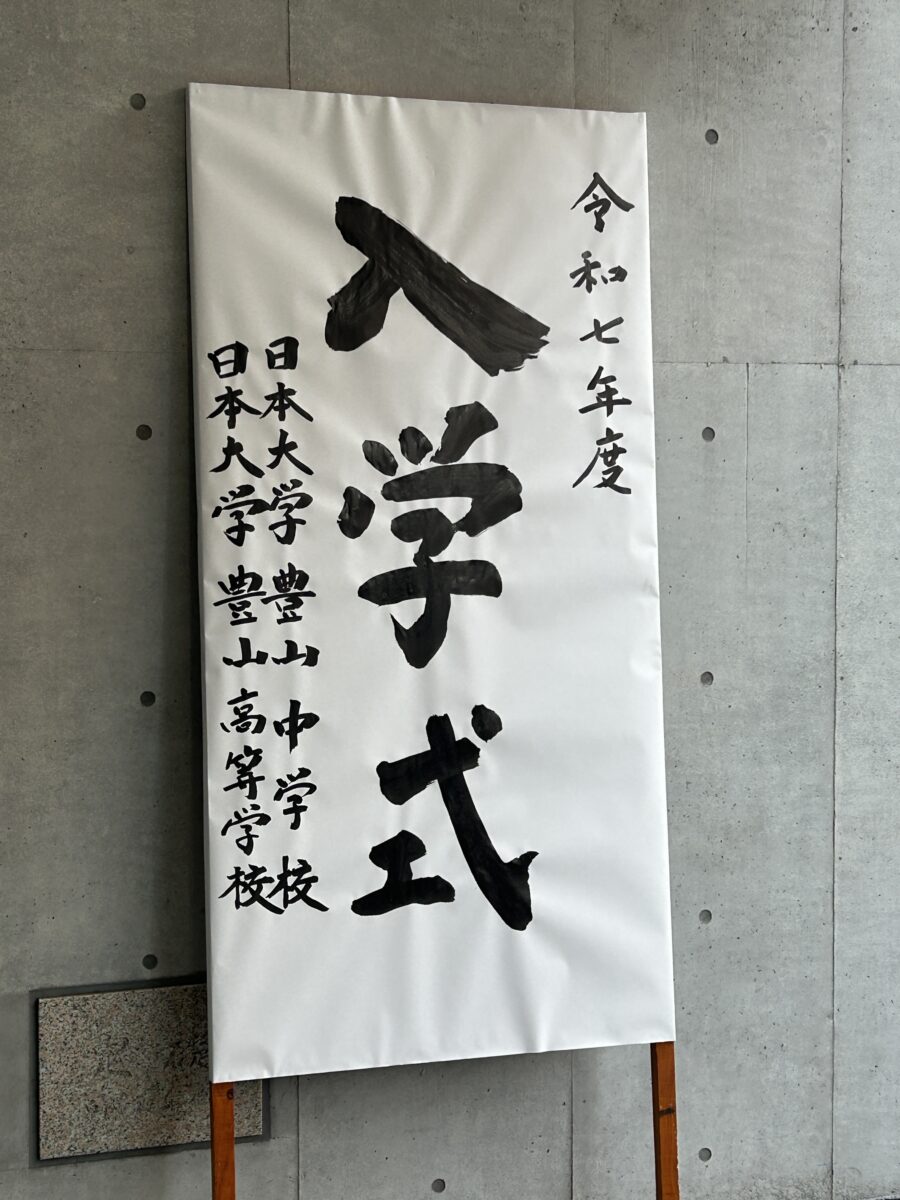 令和七年度
入学式
日本大学豊山中学校
日本大学豊山高等学校